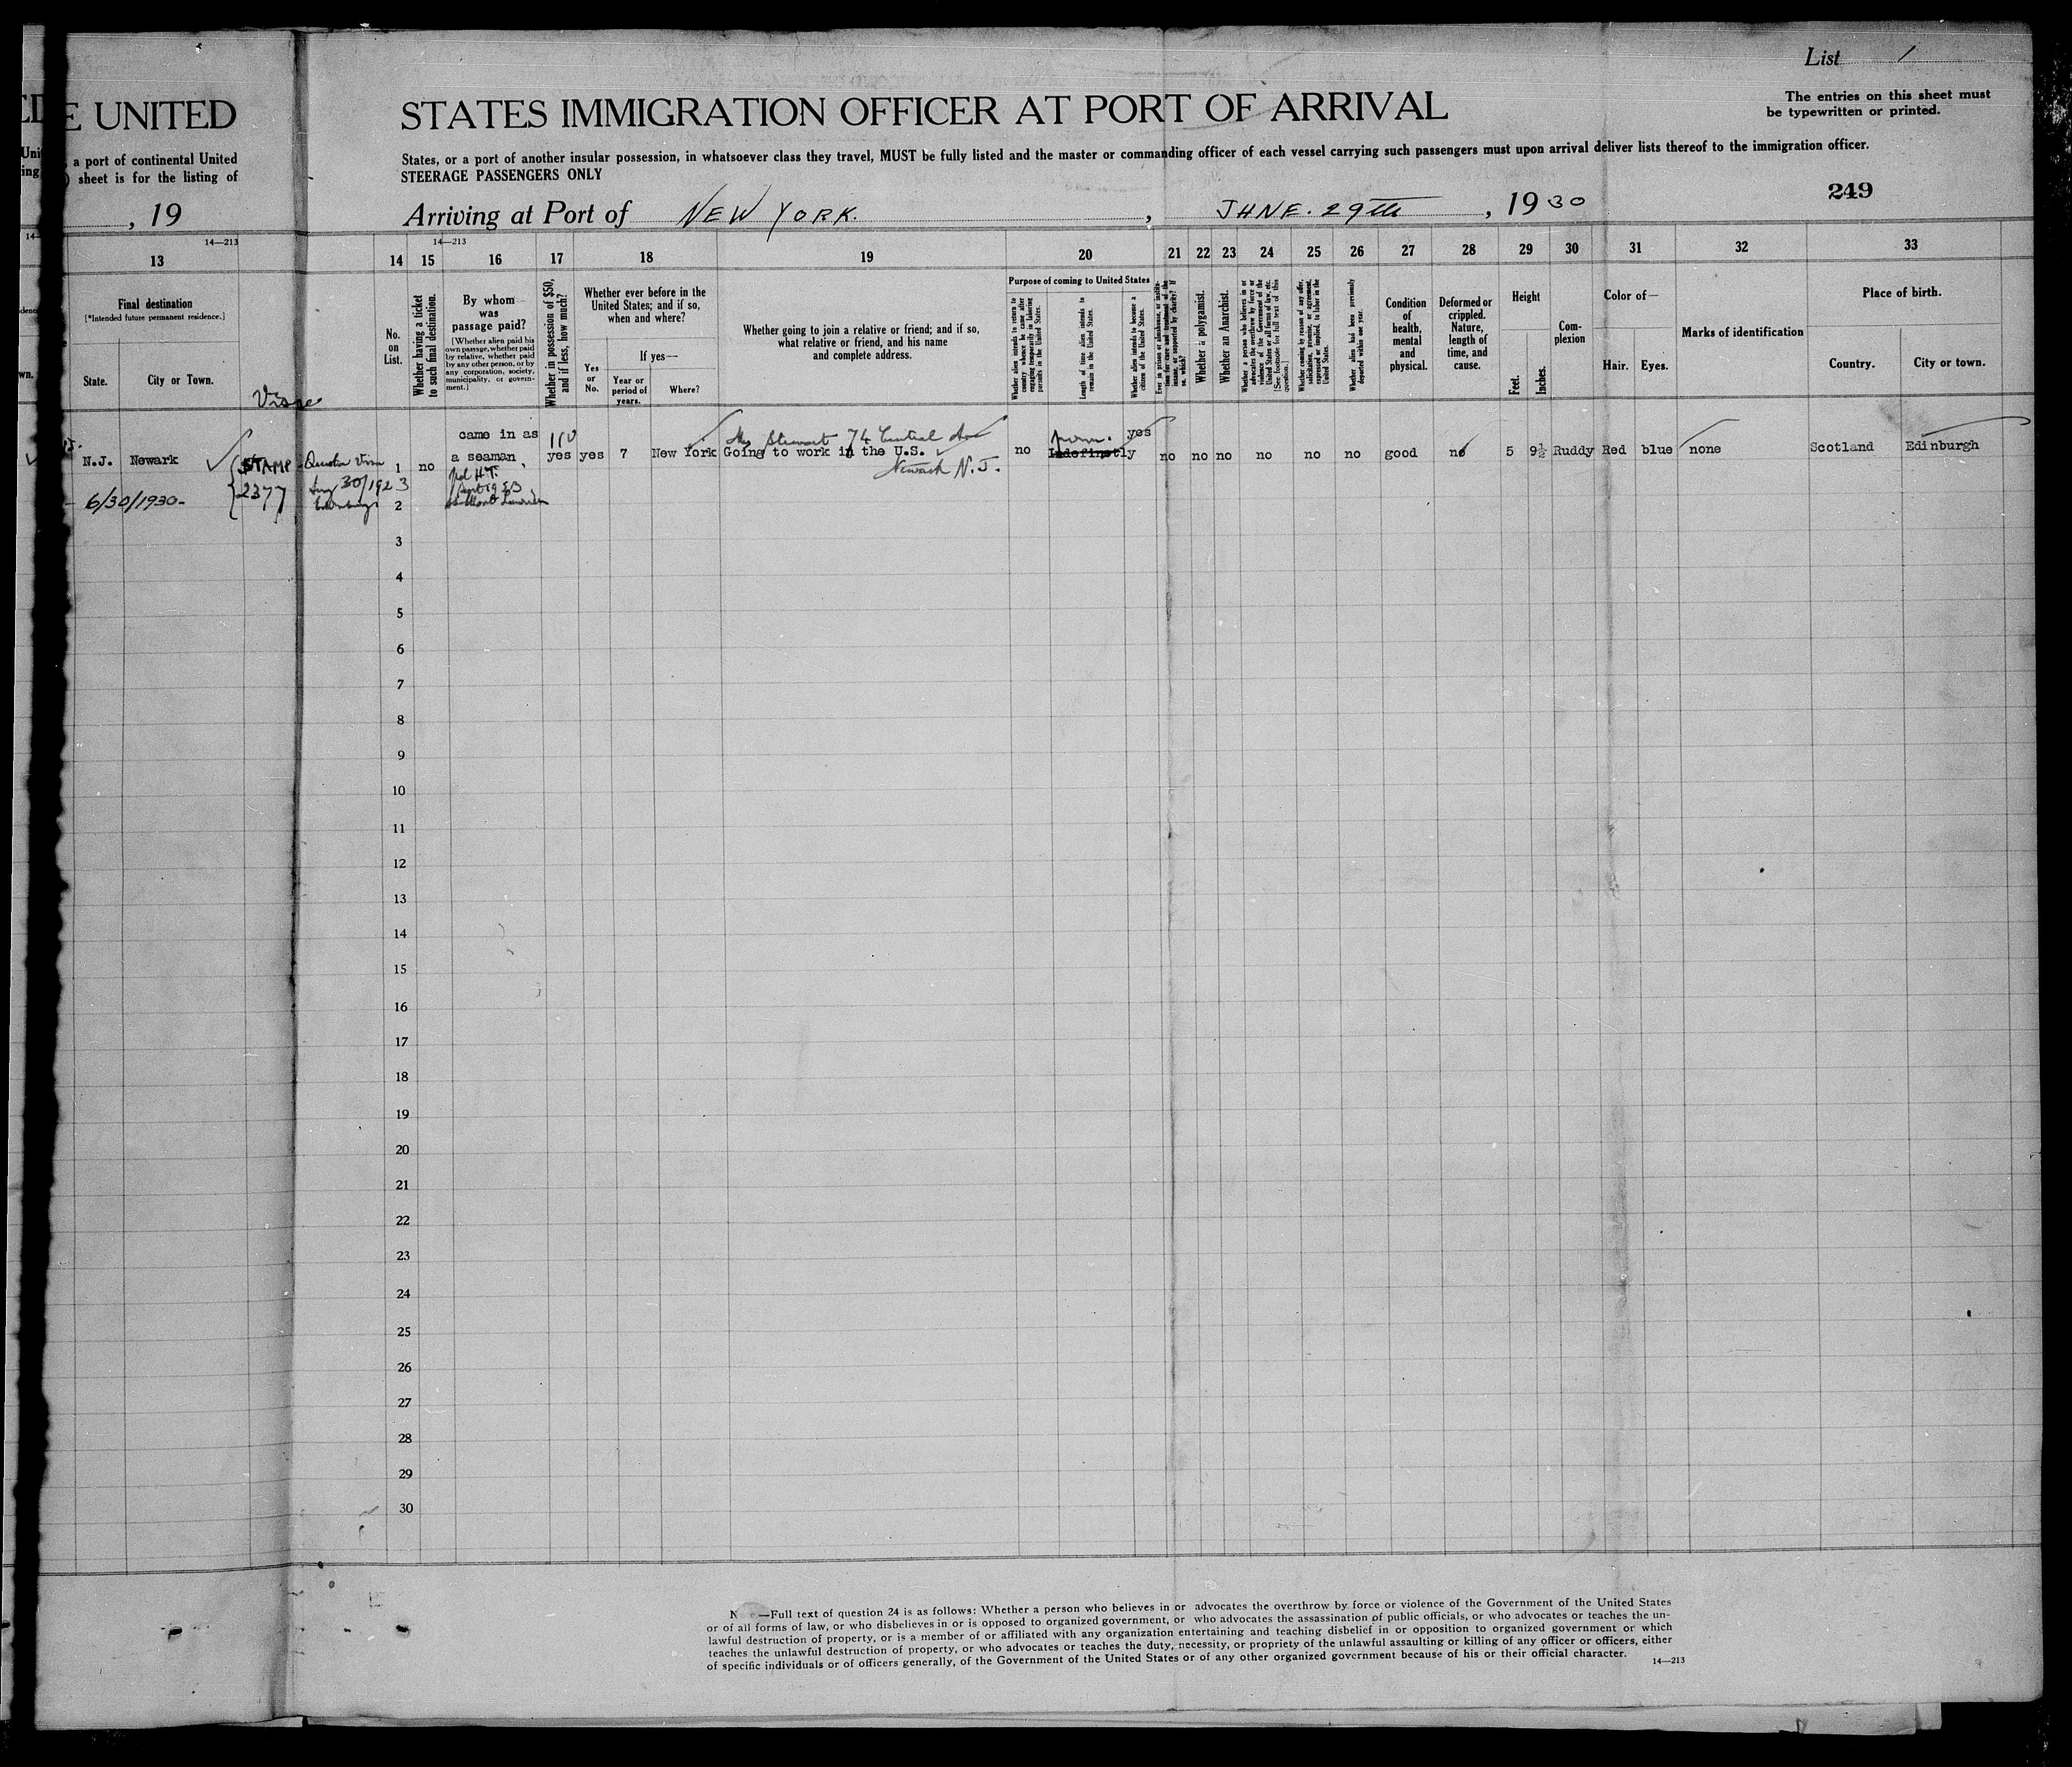 List 1
E UNITED
STATES IMMIGRATION OFFICER AT PORT OF ARRIVAL
The entries on this sheet must
be typewritten or printed.
a port of continental United
sheet is for the listing of
States, or a port of another insular possession, in whatsoever class they travel, MUST be fully listed and the master or commanding officer of each vessel carrying such passengers must upon arrival deliver lists thereof to the immigration officer.
STEERAGE PASSENGERS ONLY
249
, 19
Arriving at Port of NEW YORK. , JUNE. 29th , 1930
14—213
14—213
13 14 15 16 17 18 19 20 21 22 23 24 25 26 27 28 29 30 31 32 33
Final destination
[*Intended future permanent residence.]
State.
City or Town.
Visae
No.
on
List.
Whether having a ticket
to such final destination.
By whom
was
passage paid?
[Whether alien paid his
own passage, whether paid
by relative, whether paid
by any other person, or by
any corporation, society,
municipality, or govern-
ment.]
Whether in possession of $50,
and if less, how much?
Whether ever before in the
United States; and if so,
when and where?
Yes
or
No.
If yes—
Year or
period of
years.
Where?
Whether going to join a relative or friend; and if so,
what relative or friend, and his name
and complete address.
Purpose of coming to United States
Whether alien intends to return to
country whence he came after
engaging temporarily in laboring
pursuits in the United States.
Length of time alien intends to
remain in the United States.
Whether alien intends to become a
citizen of the United States.
Ever in prison or almshouse, or institu-
tion for care and treatment of the
insane, or supported by charity? If
so, which?
Whether a polygamist.
Whether an Anarchist.
Whether a person who believes in or
advocates the overthrow by force or
violence of the Government of the
United States or all forms of law, etc.
[See footnote for full text of this
question.]
Whether coming by reason of any offer,
solicitation, promise, or agreement,
expressed or implied, to labor in the
United States.
Whether alien had been previously
deported within one year.
Condition
of
health,
mental
and
physical.
Deformed or
crippled.
Nature,
length of
time, and
cause.
Height
Feet.
Inches.
Com-
plexion
Color of—
Hair.
Eyes.
Marks of identification
Place of birth.
Country.
City or town.
came in as 110 Stewart 74 Central Ave perm. yes
N.J. Newark STAMP 1 no a seaman yes yes 7 New York Going to work in the U.S. no Indefinetly no no no no no no good no 5 9½ Ruddy Red blue none Scotland Edinburgh
Newark N.J.
6/30/1930- 2377 2
3
4
5
6
7
8
9
10
11
12
13
14
15
16
17
18
19
20
21
22
23
24
25
26
27
28
29
30
—Full text of question 24 is as follows: Whether a person who believes in or advocates the overthrow by force or violence of the Government of the United States
or of all forms of law, or who disbelieves in or is opposed to organized government, or who advocates the assassination of public officials, or who advocates or teaches the un-
lawful destruction of property, or is a member of or affiliated with any organization entertaining and teaching disbelief in or opposition to organized government or which
teaches the unlawful destruction of property, or who advocates or teaches the duty, necessity, or propriety of the unlawful assaulting or killing of any officer or officers, either
of specific individuals or of officers generally, of the Government of the United States or of any other organized government because of his or their official character.
14—213